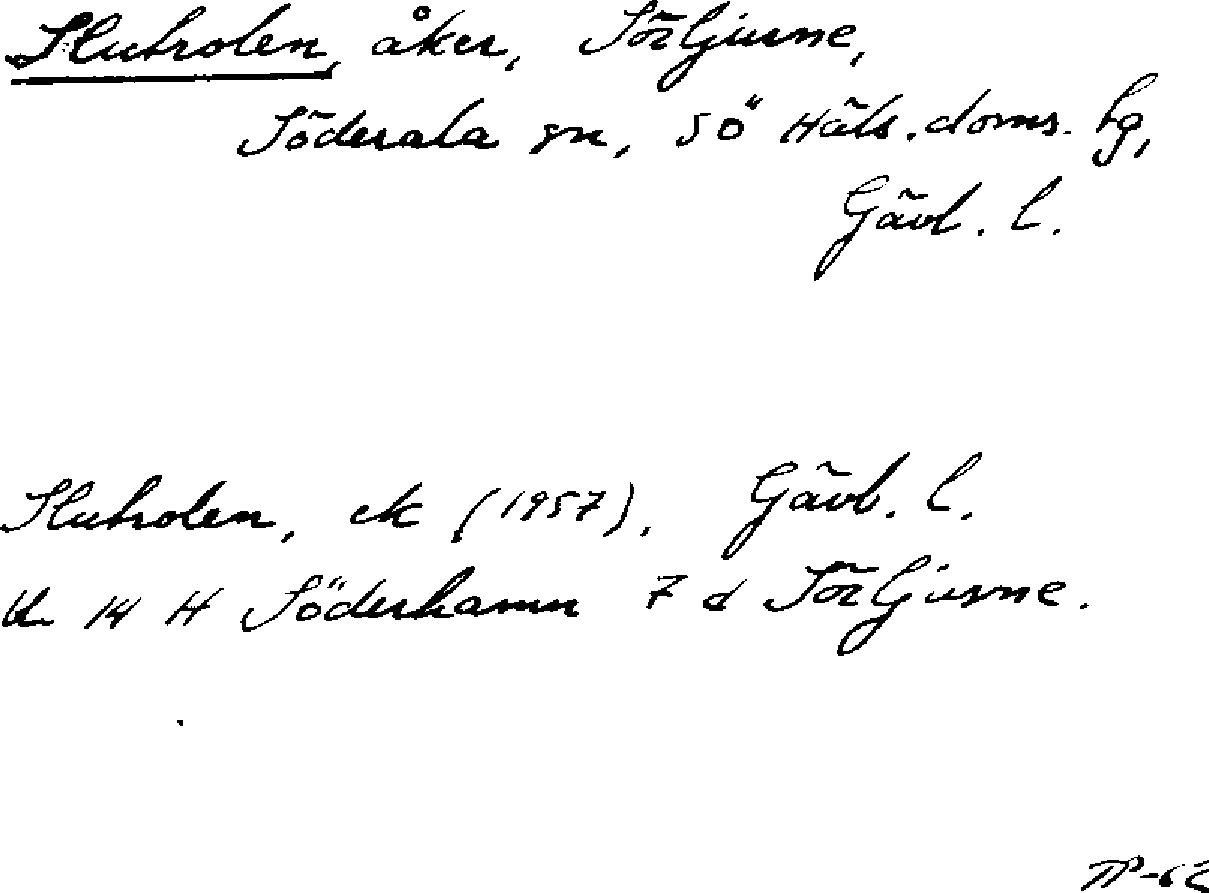 Slutrolen, åker, Sörljusne,
Söderala sn, SÖ Häls. doms. hg,
Gävl. l.
Slutrolen, ek (1957), Gävb. l.
14 H Söderhamn 7 d Sörljusne.
TP-62